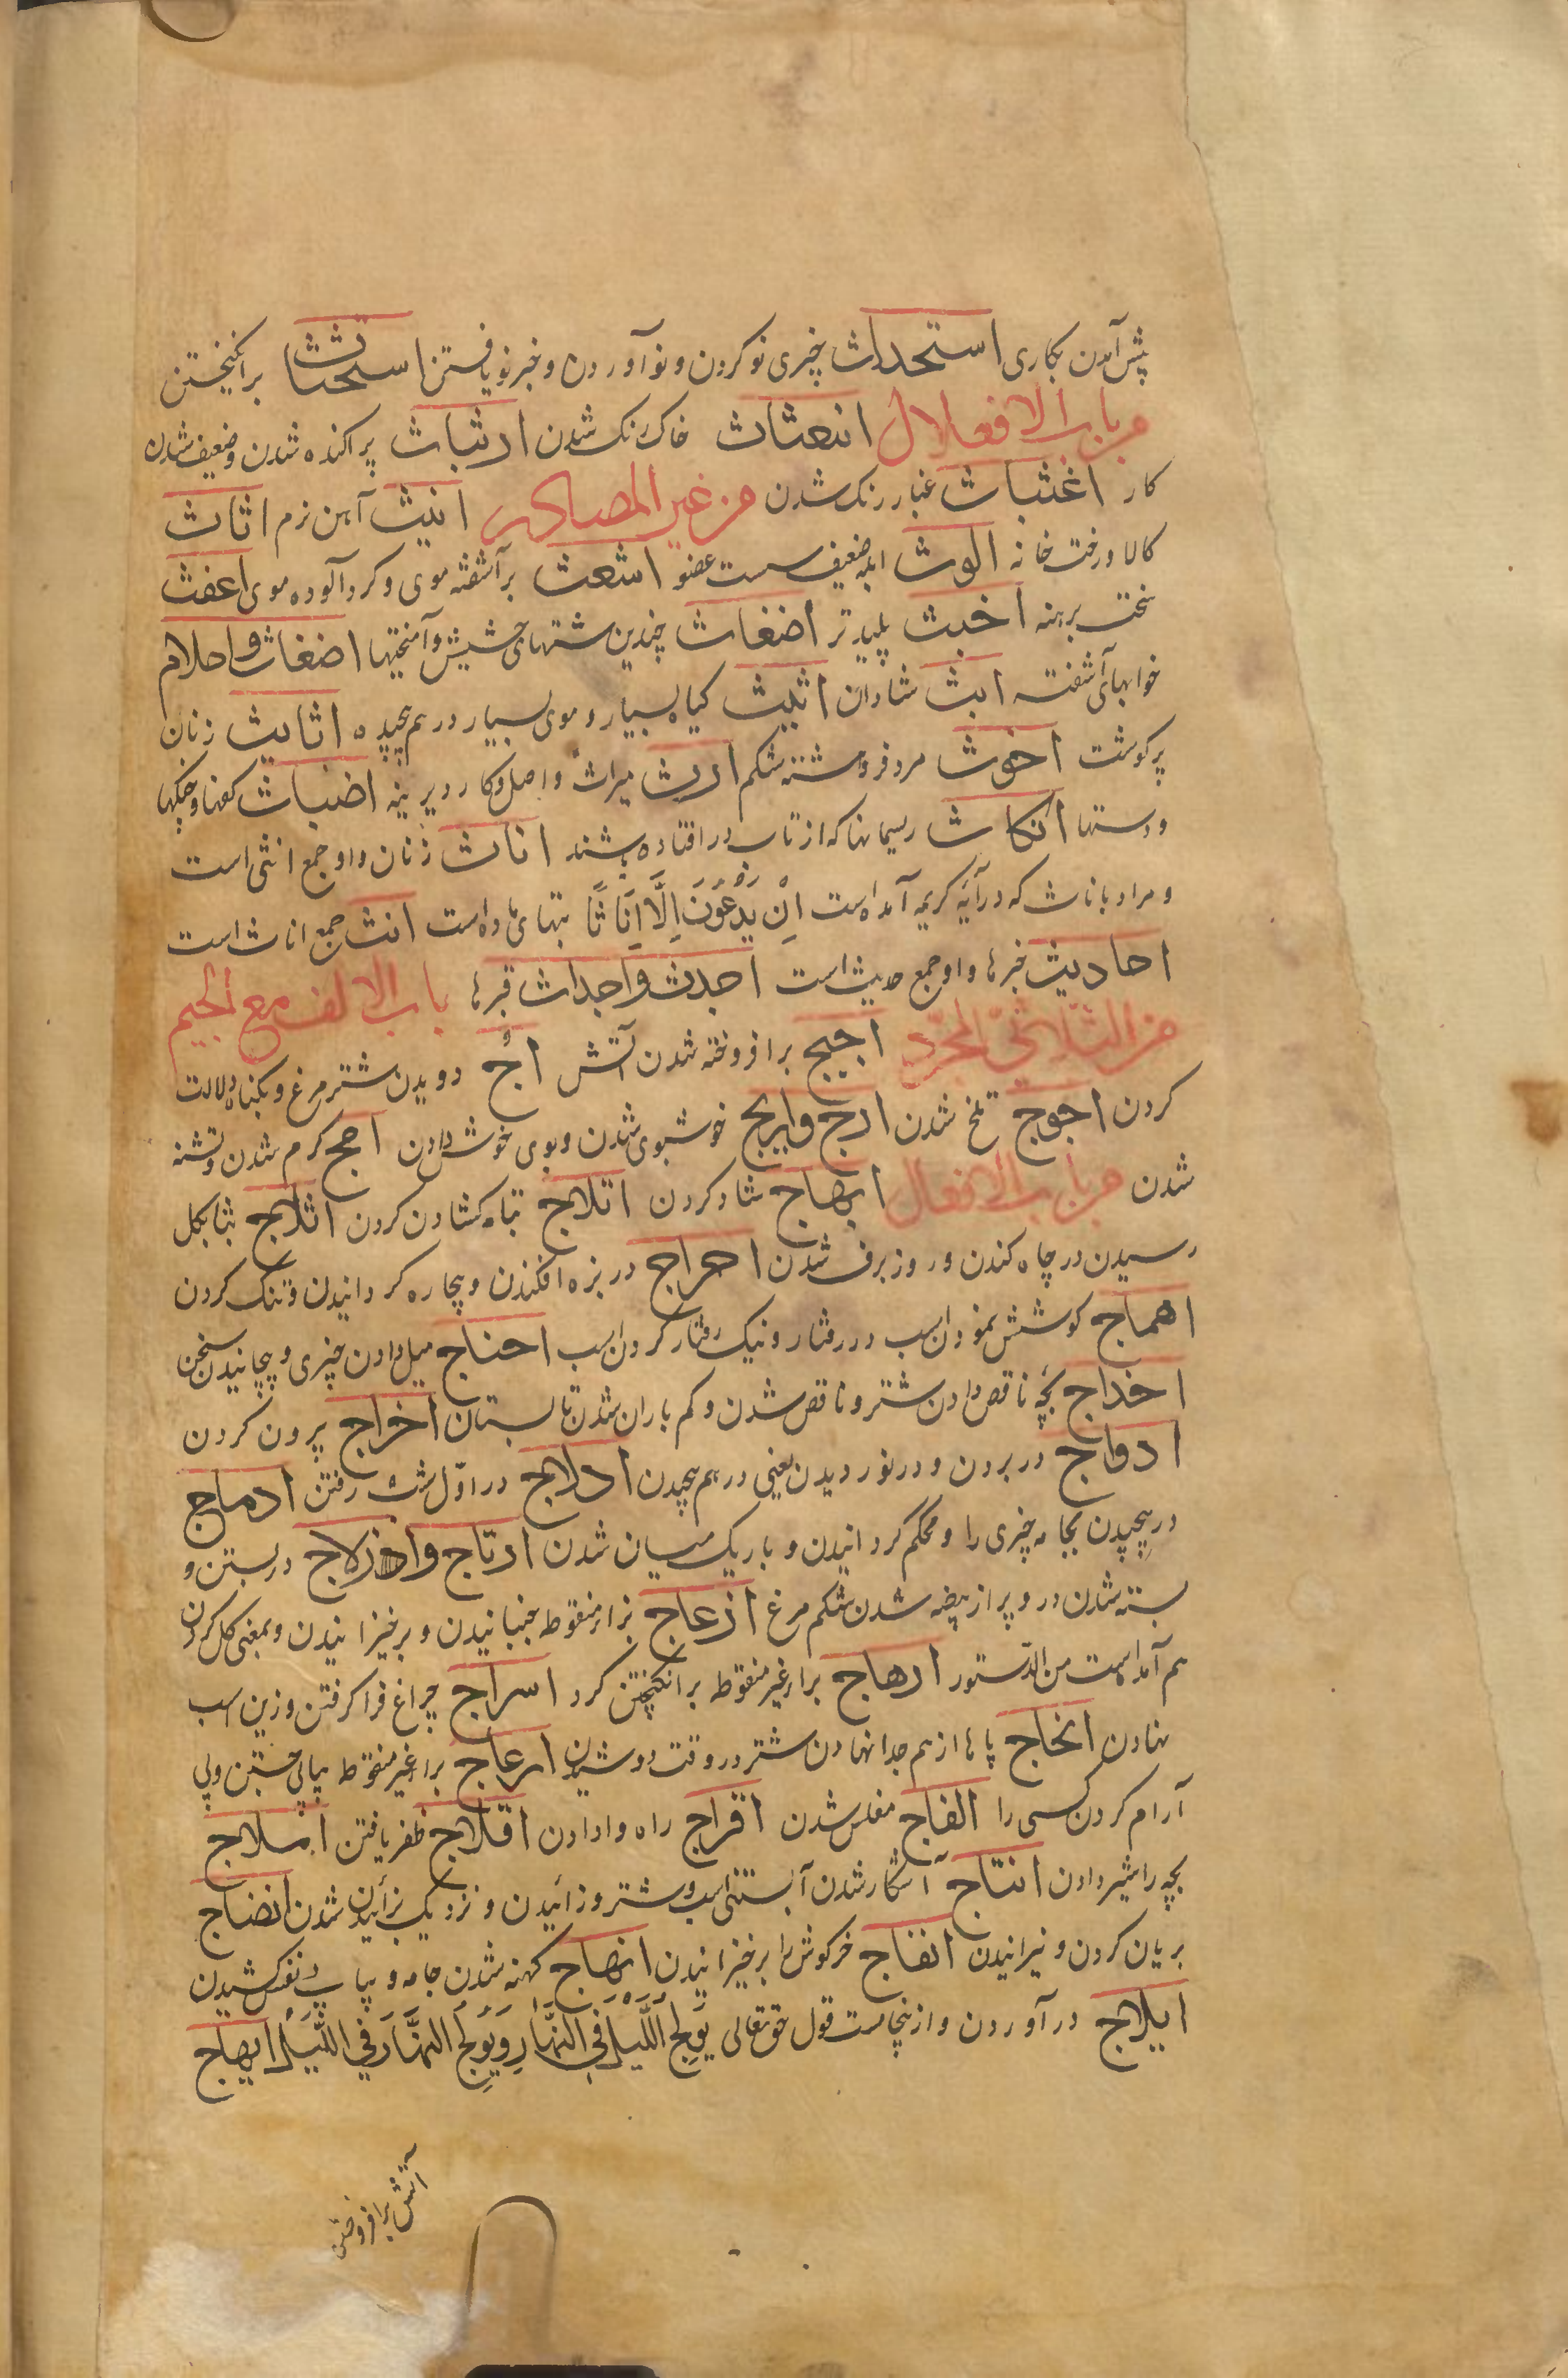 پیش آمدن بکاری استحداث چیزی نو کردن و نو آوردن و خبر نو یافتن استحثاث برانکیختن
من باب الافعلال ابغثاث خاک رنک شدن ارثباث پراکنده شدن و ضعیف شدن
کار اغثباث غبار رنک شدن من غیر المصادر انیث آهن نرم اثاث
کالا و رخت خانه الوث ابله ضعیف سست عضو اشعث برآشفته موی و کرد آلوده موی اعفث
سخت برهنه اخبث پلیدتر اضغاث چندین مشتهای حشیش و آمختها اضغاث واحلام
خوابهای آشفته ابث شادان اثیث کیاه بسیار و موی بسیار در هم پیچیده اثایث زنان
پرکوشت اخوث مرد فروهشته شکم ارث میراث و اصل و کار دیرینه اضباث کفها و چنکها
و دستها انکاث ریسمانها که از تاب در افتاده باشند اناث زنان و او جمع انثی است
و مراد باناث که در آیه کریمه آمده است اِنْ یَدْعُوْنَ اِلَّا اِنَاثًا بتهای ماده است انث جمع اناث است
احادیث خبرها و او جمع حدیث است اجدث واجداث قبرها باب الالف مع الجیم
من الثلاثی المجرد اجیج برافروخته شدن آتش اج دویدن شتر مرغ و بکناه دلالت
کردن اجوج تلخ شدن ارج واریج خوشبوی شدن و بوی خوش دادن احج کرم شدن و تشنه
شدن من باب الافعال ابهاج شاد کردن اتلاج تباه کشادن کردن اثلاج بتا بکل
رسیدن در چاه کندن و روز برف شدن احراج در بزه افکندن و بیچاره کردانیدن و تنک کردن
اهماج کوشش نمودن اسب در رفتار و نیک رفتار کردن اسب احناج میل دادن چیزی و پیچانیدن سخن
اخداج بچه ناقص دادن شتر و ناقص شدن و کم باران شدن تابستان اخراج بیرون کردن
ادواج در بردن و در نوردیدن یعنی در هم پیچیدن ادلاج در اول شب رفتن ادماج
در پیچیدن بجامه چیزی را و محکم کردانیدن و باریک میان شدن ارتاج وازلاج در بستن و
بسته شدن در و پر از بیضه شدن شکم مرغ ازعاج بزاء منقوطه جنبانیدن و برخیزانیدن و بمعنی کل کردن
هم آمده است من الدستور ارهاج براء غیر منقوطه برانکیختن کرد اسراج چراغ فرا کرفتن و زین اسب
نهادن افحاج پاها از هم جدا نهادن شتر در وقت دوشیدن ارعاج براء غیر منقوطه بیاپی جستن و بی
آرام کردن کسی را الفاج مفلس شدن افراج راه وا دادن افلاج ظفر یافتن املاج
بچه را شیر دادن انتاج آشکار شدن آبستنی اسب و شتر و زائیدن و نزدیک بزائیدن شدن انضاج
بریان کردن و نیرانیدن انفاج خرکوش را برخیزانیدن انهاج کهنه شدن جامه و بیاپی نفس کشیدن
ایلاج در آوردن و ازینجاست قول حق تعالی یُوْلِجُ اللَّیْلَ فِی النَّهَارِ وَیُوْلِجُ النَّهَارَ فِی اللَّیْلِ ایهاج
آتش برافروختن